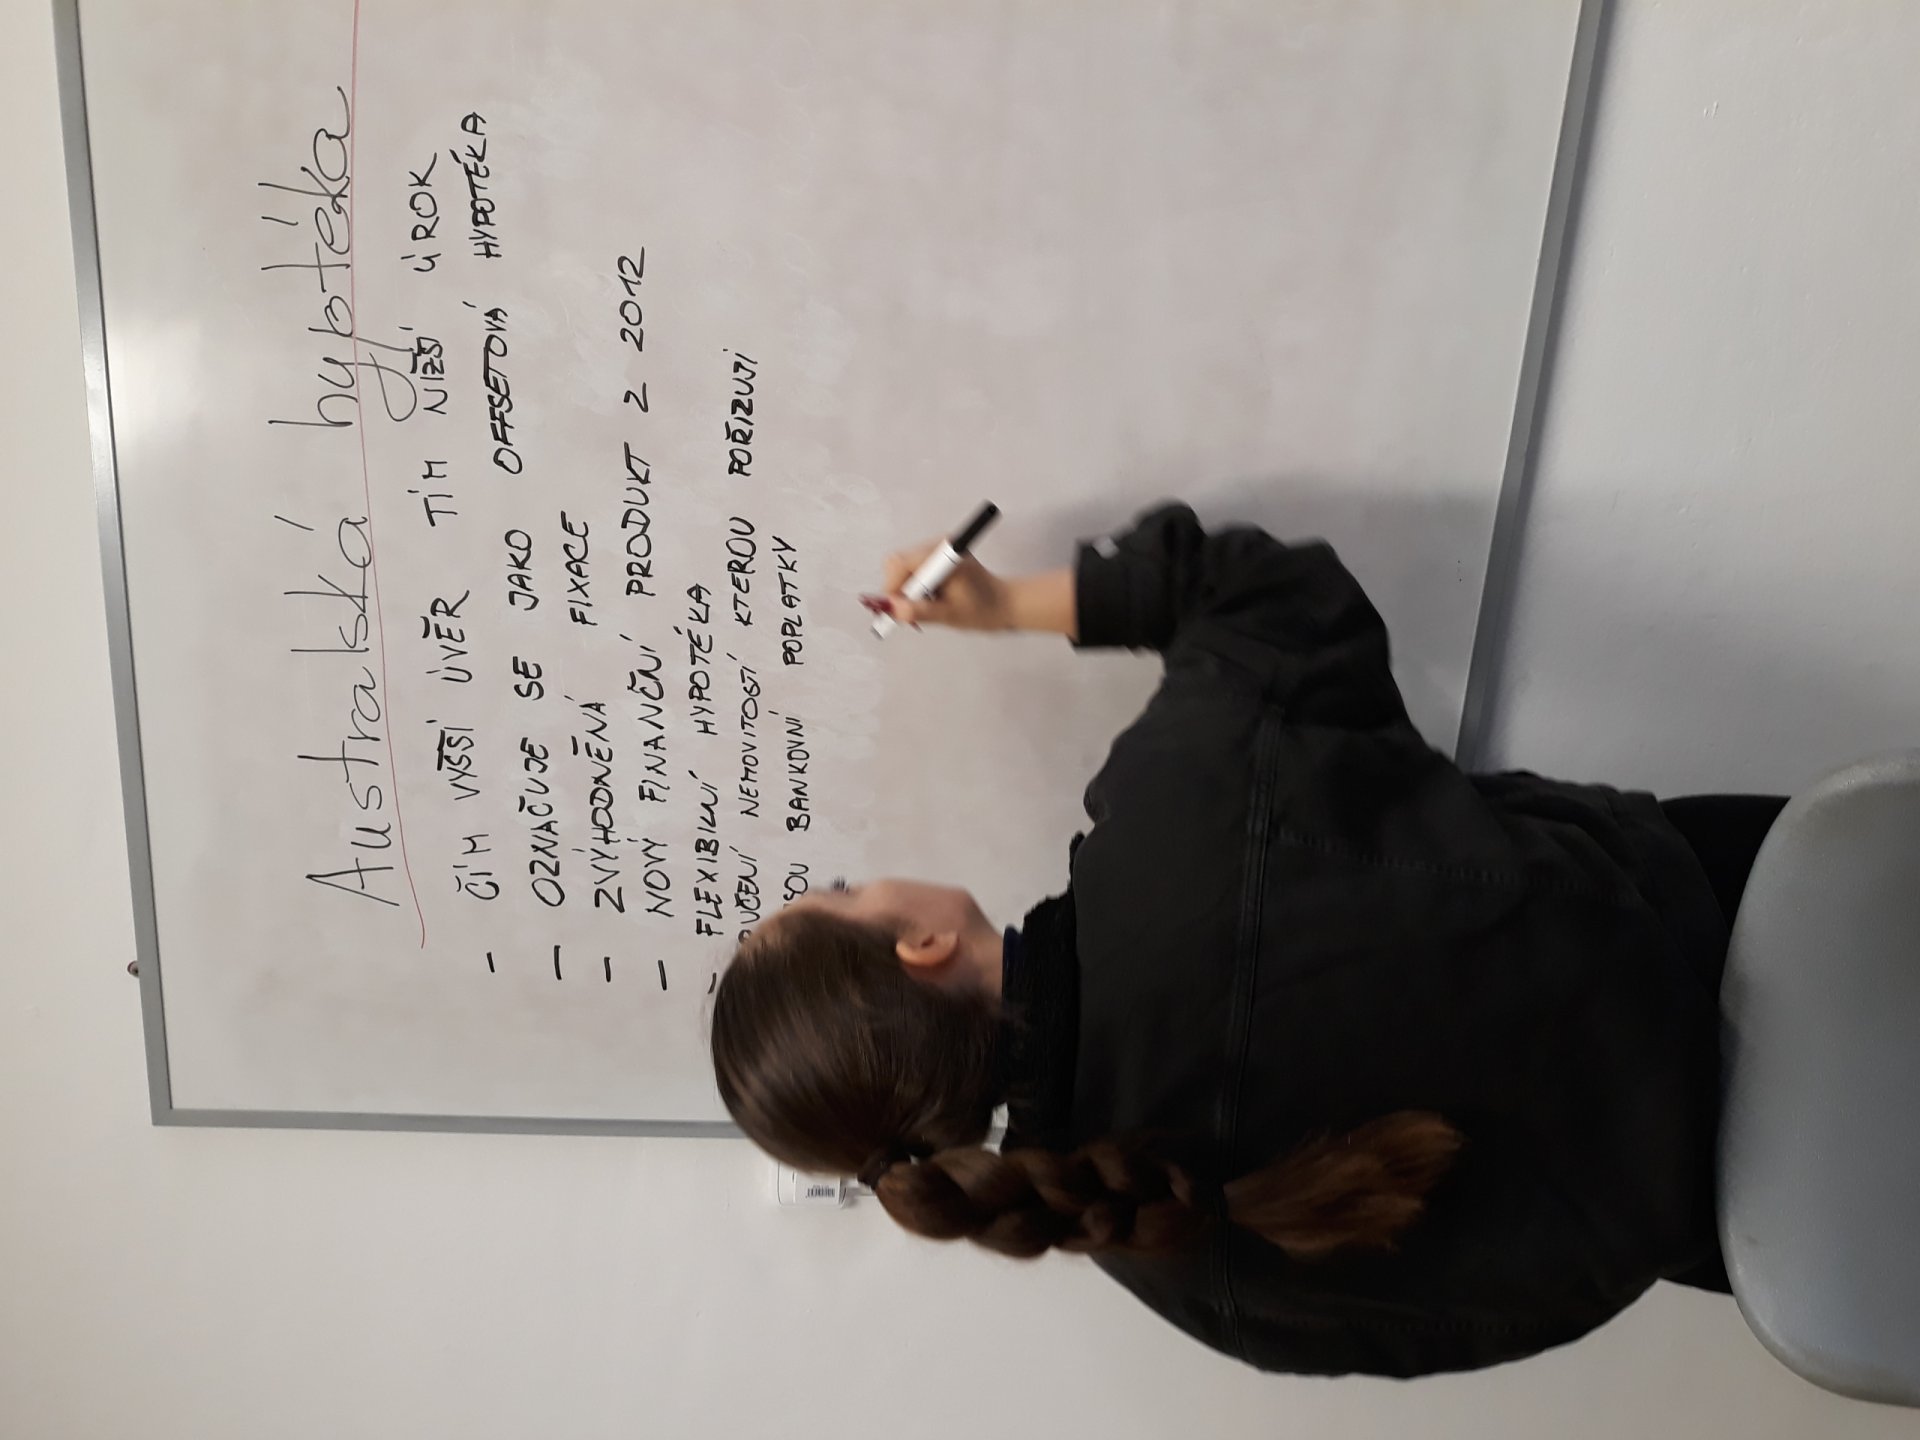 Australská hypotéka
- ČÍM VYŠŠÍ ÚVĚR TÍM NIŽŠÍ ÚROK
- OZNAČUJE SE JAKO OFFSETOVÁ HYPOTÉKA
- ZVÝHODNĚNÁ FIXACE
- NOVÝ FINANČNÍ PRODUKT Z 2012
- FLEXIBILNÍ HYPOTÉKA
NEMOVITOSTÍ KTEROU POŘIZUJÍ
JSOU BANKOVNÍ POPLATKY